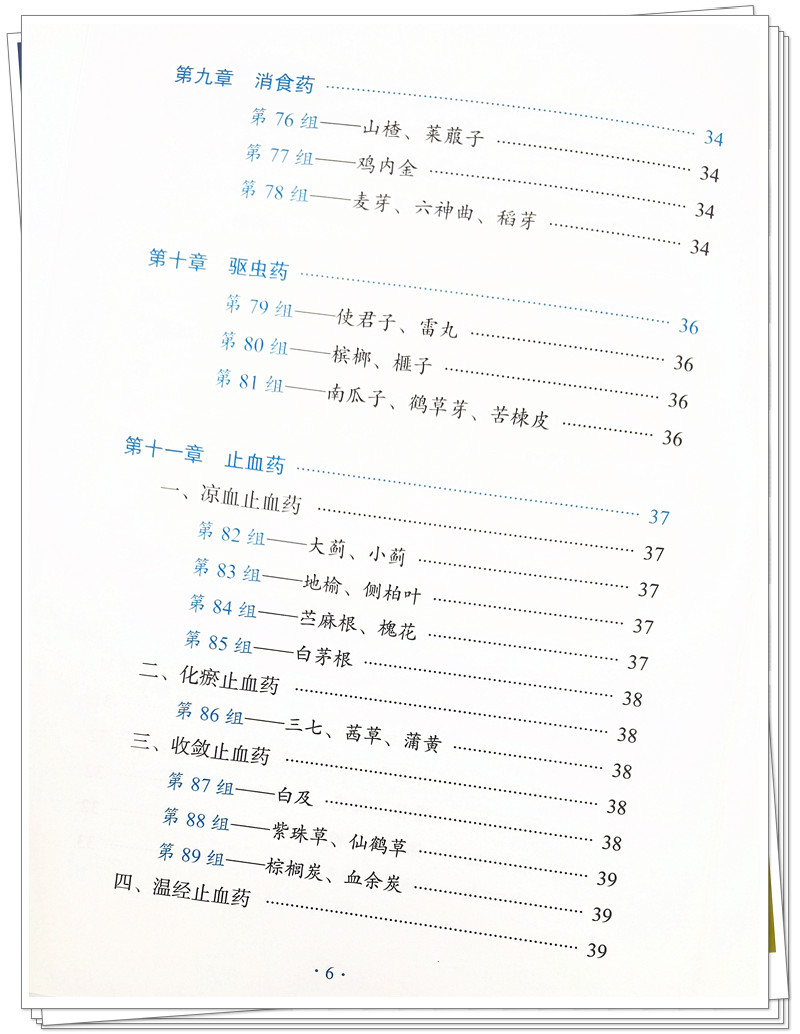 第九章 消食药 …… 34
第 76 组——山楂、莱菔子 …… 34
第 77 组——鸡内金 …… 34
第 78 组——麦芽、六神曲、稻芽 …… 34
第十章 驱虫药 …… 36
第 79 组——使君子、雷丸 …… 36
第 80 组——槟榔、榧子 …… 36
第 81 组——南瓜子、鹤草芽、苦楝皮 …… 36
第十一章 止血药 …… 37
一、凉血止血药 …… 37
第 82 组——大蓟、小蓟 …… 37
第 83 组——地榆、侧柏叶 …… 37
第 84 组——苎麻根、槐花 …… 37
第 85 组——白茅根 …… 38
二、化瘀止血药 …… 38
第 86 组——三七、茜草、蒲黄 …… 38
三、收敛止血药 …… 38
第 87 组——白及 …… 38
第 88 组——紫珠草、仙鹤草 …… 39
第 89 组——棕榈炭、血余炭 …… 39
四、温经止血药 …… 39
· 6 ·